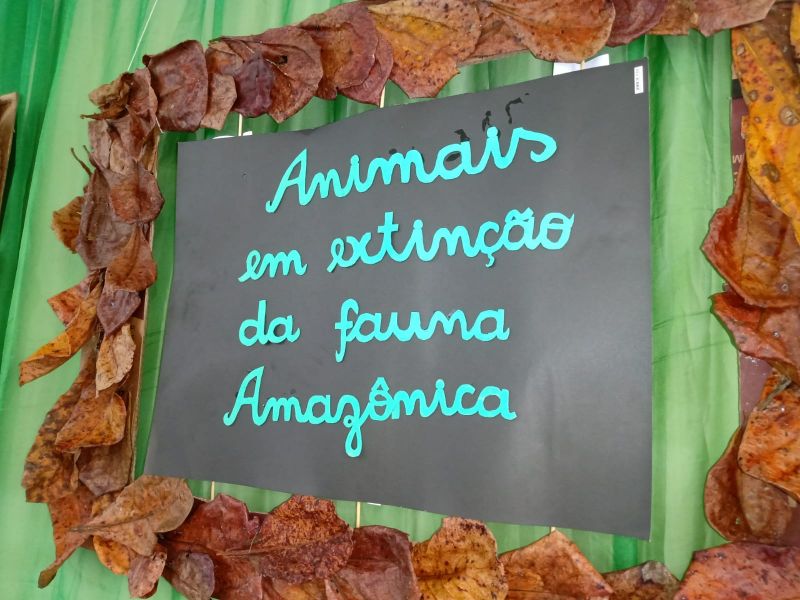 Animais
em extinção
da fauna
Amazônica